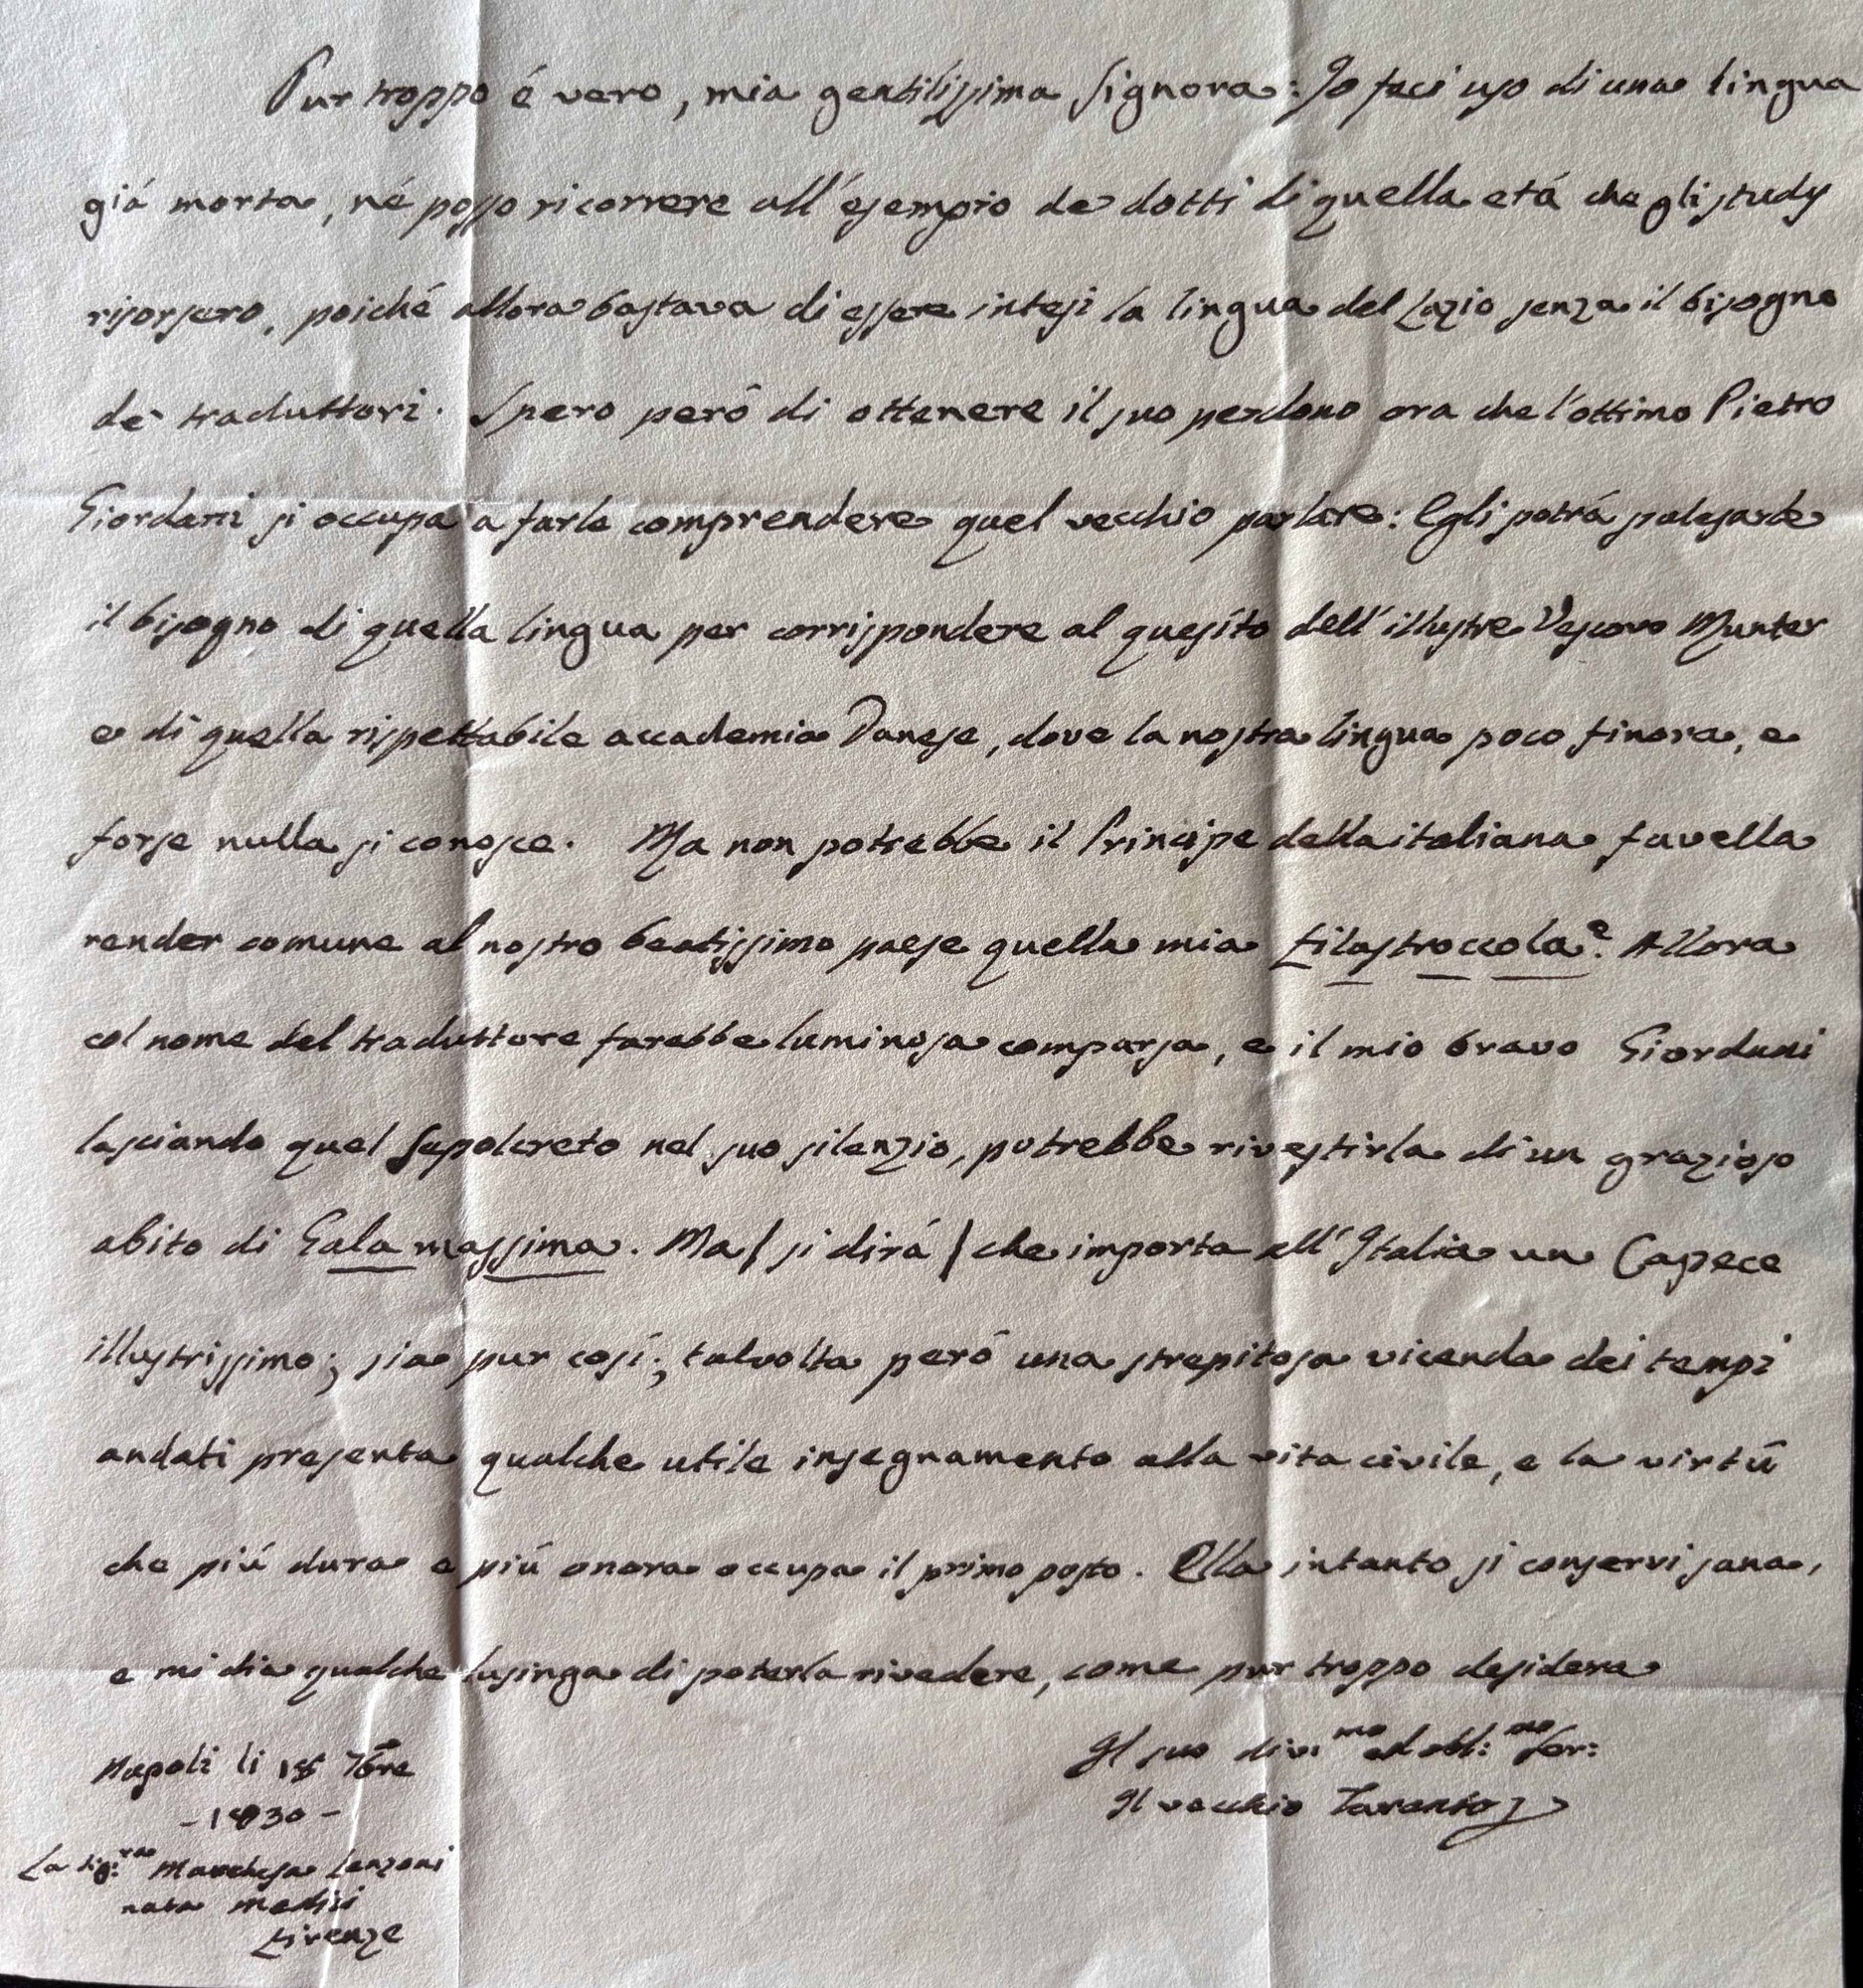 Pur troppo é vero, mia gentilissima Signora: Io feci uso di una lingua
giá morta, né posso ricorrere all'esempio de' dotti di quella etá che gli studj
risorsero, poiché allora bastava di essere intesi la lingua del Lazio senza il bisogno
de' traduttori. Spero peró di ottenere il suo perdono ora che l'ottimo Pietro
Giordani si occupa a farle comprendere quel vecchio parlare: Egli potrá palesarle
il bisogno di quella lingua per corrispondere al quesito dell'illustre Vescovo Munter
e di quella rispettabile accademia Danese, dove la nostra lingua poco finora, e
forse nulla si conosce. Ma non potrebbe il Principe della italiana favella
render comune al nostro beatissimo paese quella mia filastroccola? Allora
col nome del traduttore farebbe luminosa comparsa, e il mio bravo Giordani
lasciando quel Sepolcreto nel suo silenzio, potrebbe rivestirla di un grazioso
abito di Gala massima. Ma/ si dirá / che importa all'Italia un Capece
illustrissimo; sia pur cosí; talvolta peró una strepitosa vicenda dei tempi
andati presenta qualche utile insegnamento alla vita civile, e la virtú
che piú dura e piú onora occupa il primo posto. Ella intanto si conservi sana,
e mi dia qualche lusinga di poterla rivedere, come pur troppo desidera
Il suo div: mo ed obbl: mo Ser:
Il vecchio Taranto
Napoli li 18 7bre
- 1830 -
La Sig: ra Marchesa Lenzoni
nata Medici
Firenze